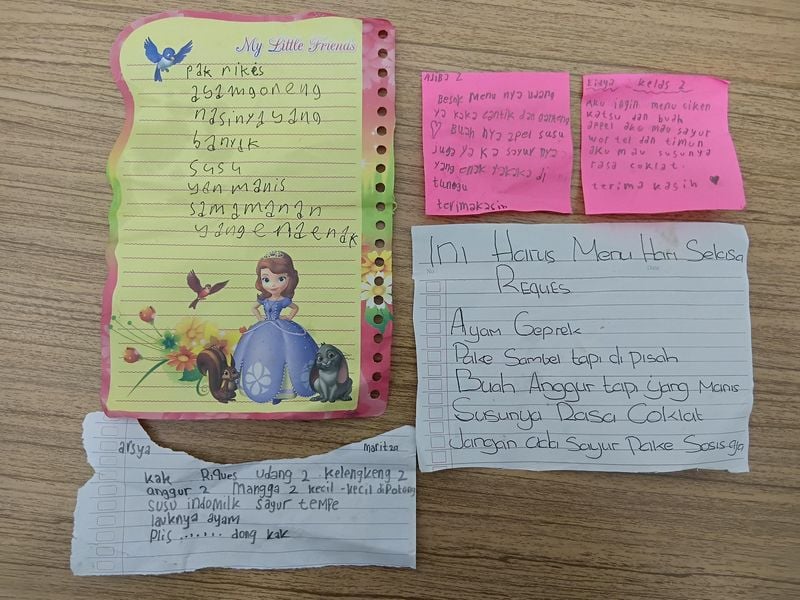 My Little Friends
pak rikes
ayamgoreng
nasinyayang
banyak
susu
yan manis
samamanan
yangenaenak
ADIBA 2
Besok menu nya udang
ya kaka cantik dan ganteng
Buah nya apel susu
Juga ya ka sayur nya
yang enak ya kaka di
tunggu
terimakasih
kelas 2
Aku ingin menu ciken
katsu dan buah
appel aku mau sayur
wortel dan timun
aku mau susunya
rasa coklat.
terima kasih
Ini Harus Menu Hari Selasa
No.
Date
Reques
Ayam Geprek
Pake Sambel tapi di pisah
Buah Anggur tapi yang Manis
Susunya Rasa Coklat
Jangan ada Sayur Pake Sosis aja
arsya
maritza
kak Riques udang 2 kelengkeng 2
anggur 2 mangga 2 kecil-kecil dipotong
susu indomilk sayur tempe
lauknya ayam
Plis ....... dong kak